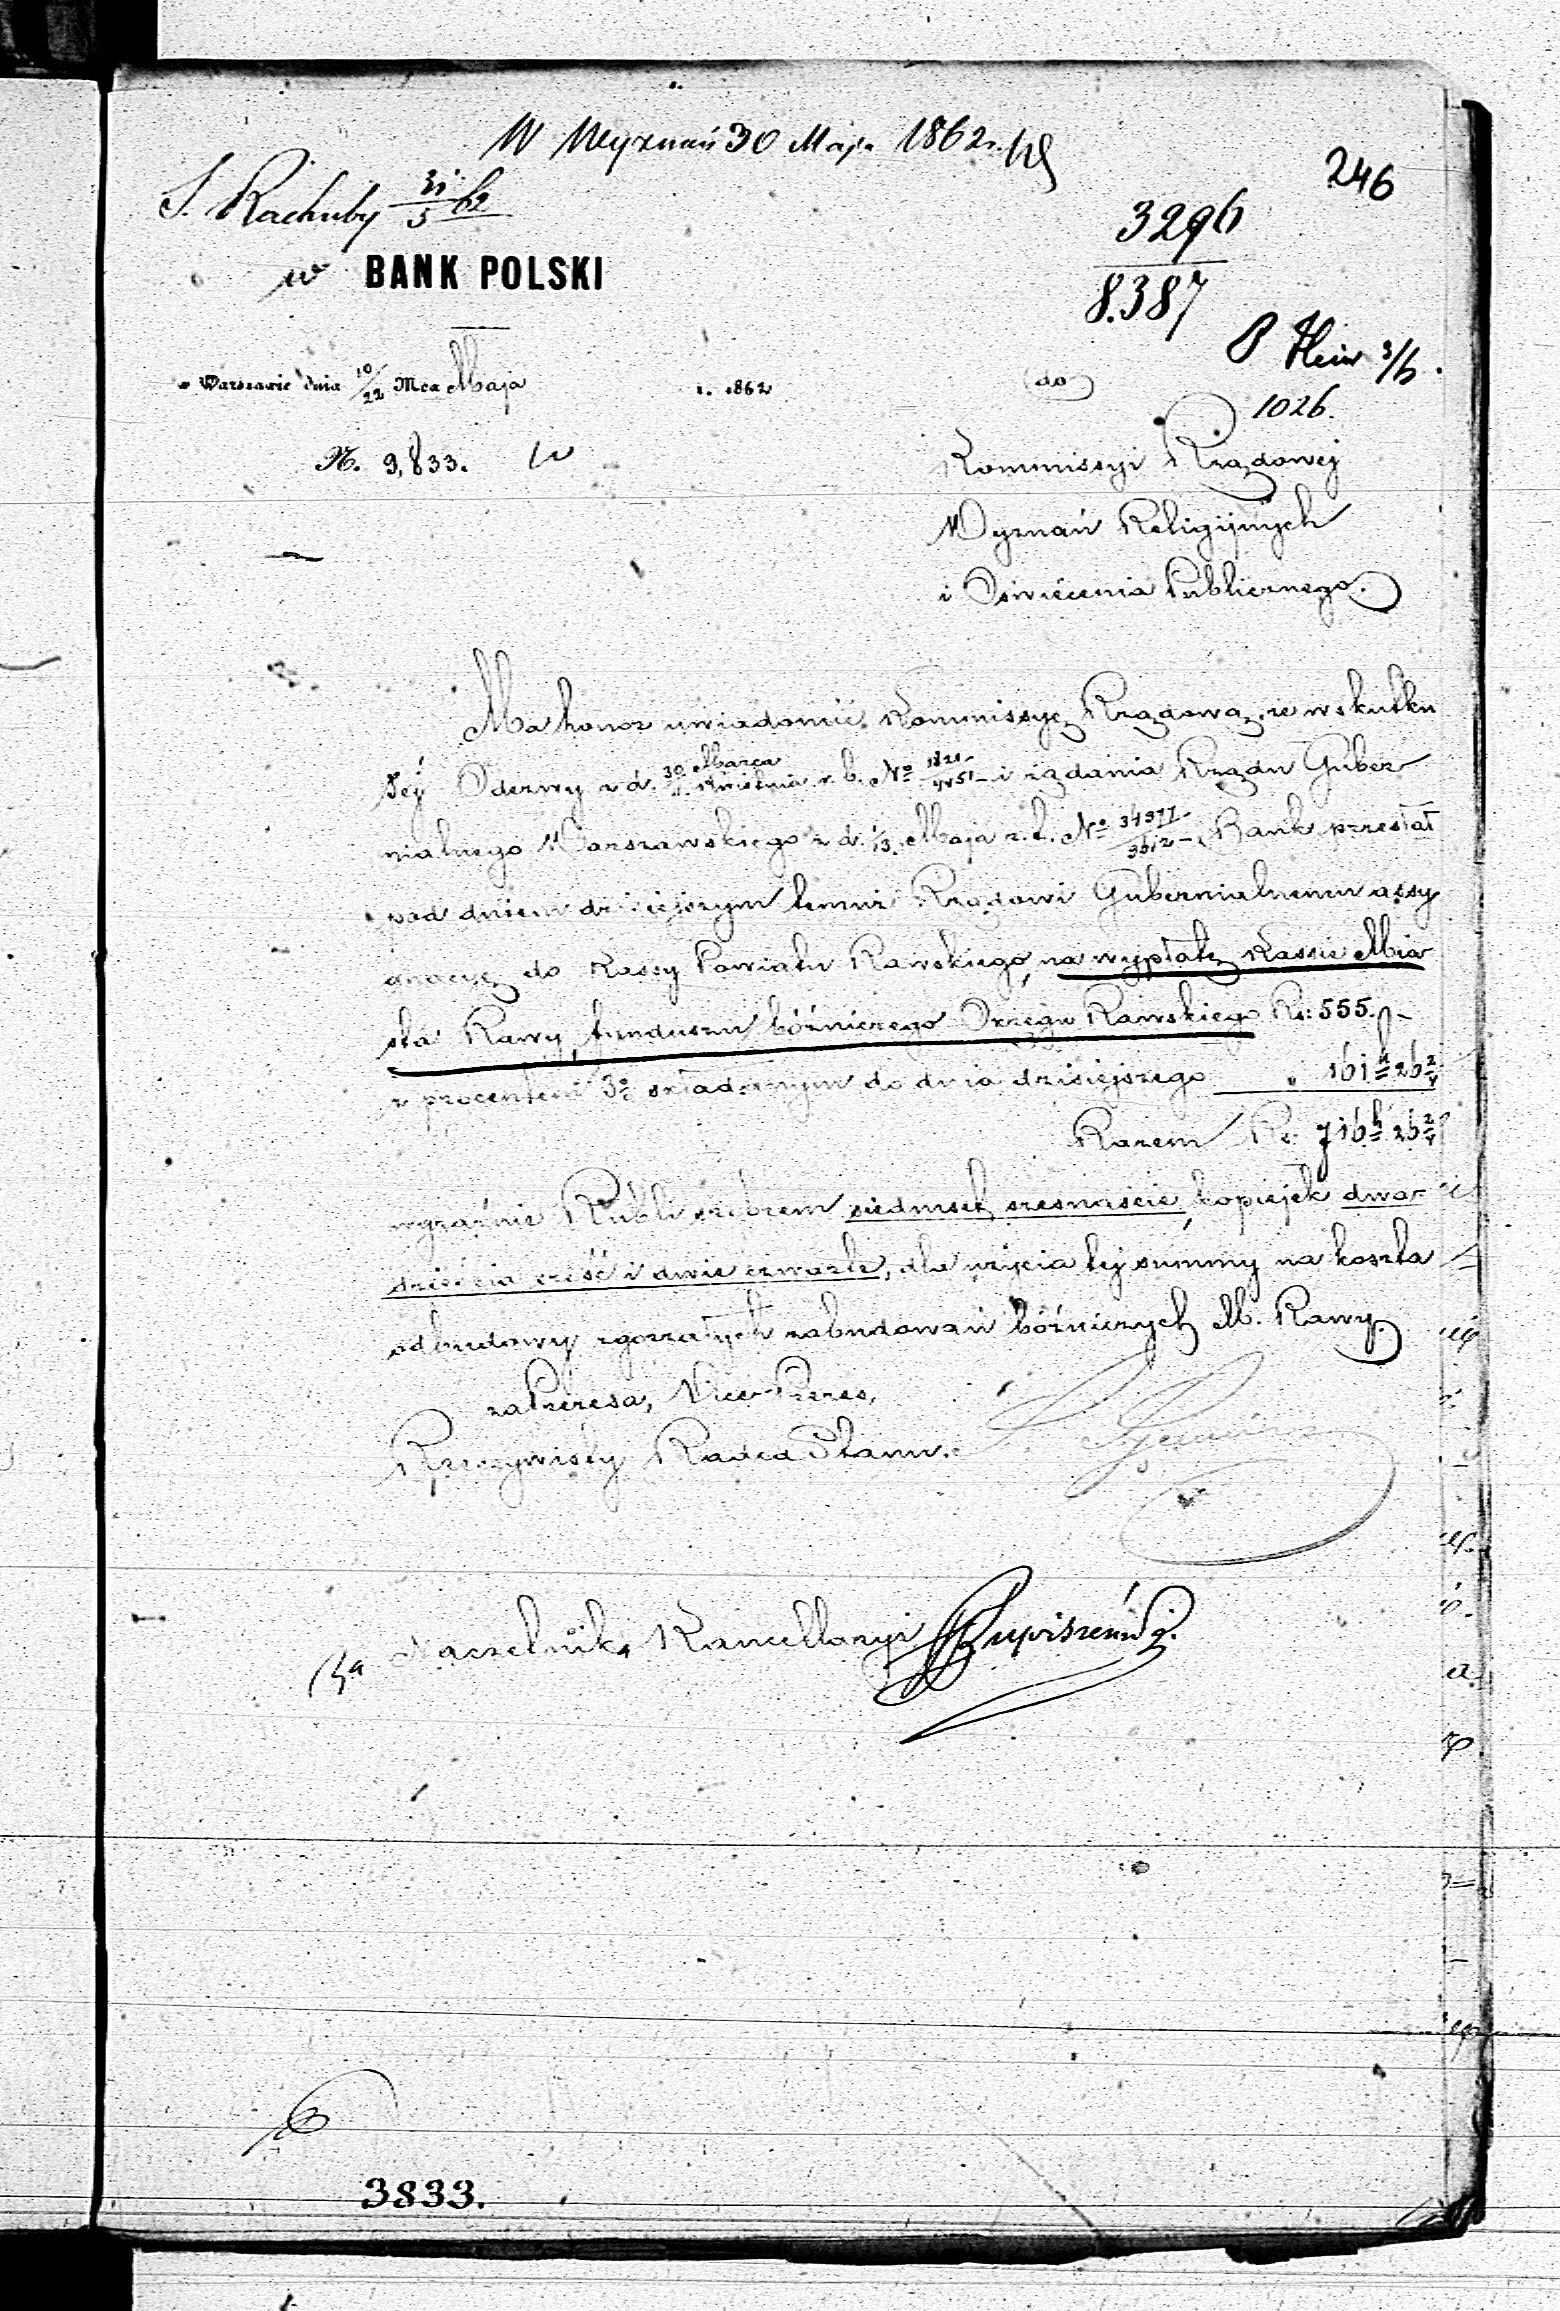 W Wyznań 30 Maja 1862 r.
246
S. Rachuby 31/5 62
3296
8.387
w BANK POLSKI
w Warszawie dnia 10/22 Mca Maja r. 1862
do
3/6.
1026.
N. 9,833.
Kommissyi Rządowej
Wyznań Religijnych
i Oświécenia Publicznego.
Ma honor uwiadomić Kommissyę Rządową, że w skutku
Jéj Odezwy z d. 30 Marca / 11 Kwietnia r. b. No i żądania Rządu Guber
nialnego Warszawskiego z d. 1/13 Maja r. b. No Bank przesłał
pod dniem dzisiejszym temuż Rządowi Gubernialnemu assy
gnacyę do Kassy Powiatu Rawskiego, na wypłatę Kassie Mia
sta Rawy, funduszu bóżniczego Okręgu Rawskiego Rs: 555. -
z procentem 3% składanym do dnia dzisiejszego „ 161 k 26 2/4
Razem Rs: 716 k 26 2/4
wyraźnie Rubli srebrem siedmset szesnaście, kopiejek dwa-
dzieścia sześć i dwie czwarte, dla użycia tej summy na koszta
odbudowy zgorzałych zabudowań bóżniczych M. Rawy.
za Prezesa, Vice-Prezes,
Rzeczywisty Radca Stanu.
za Naczelnika Kancellaryi
3833.